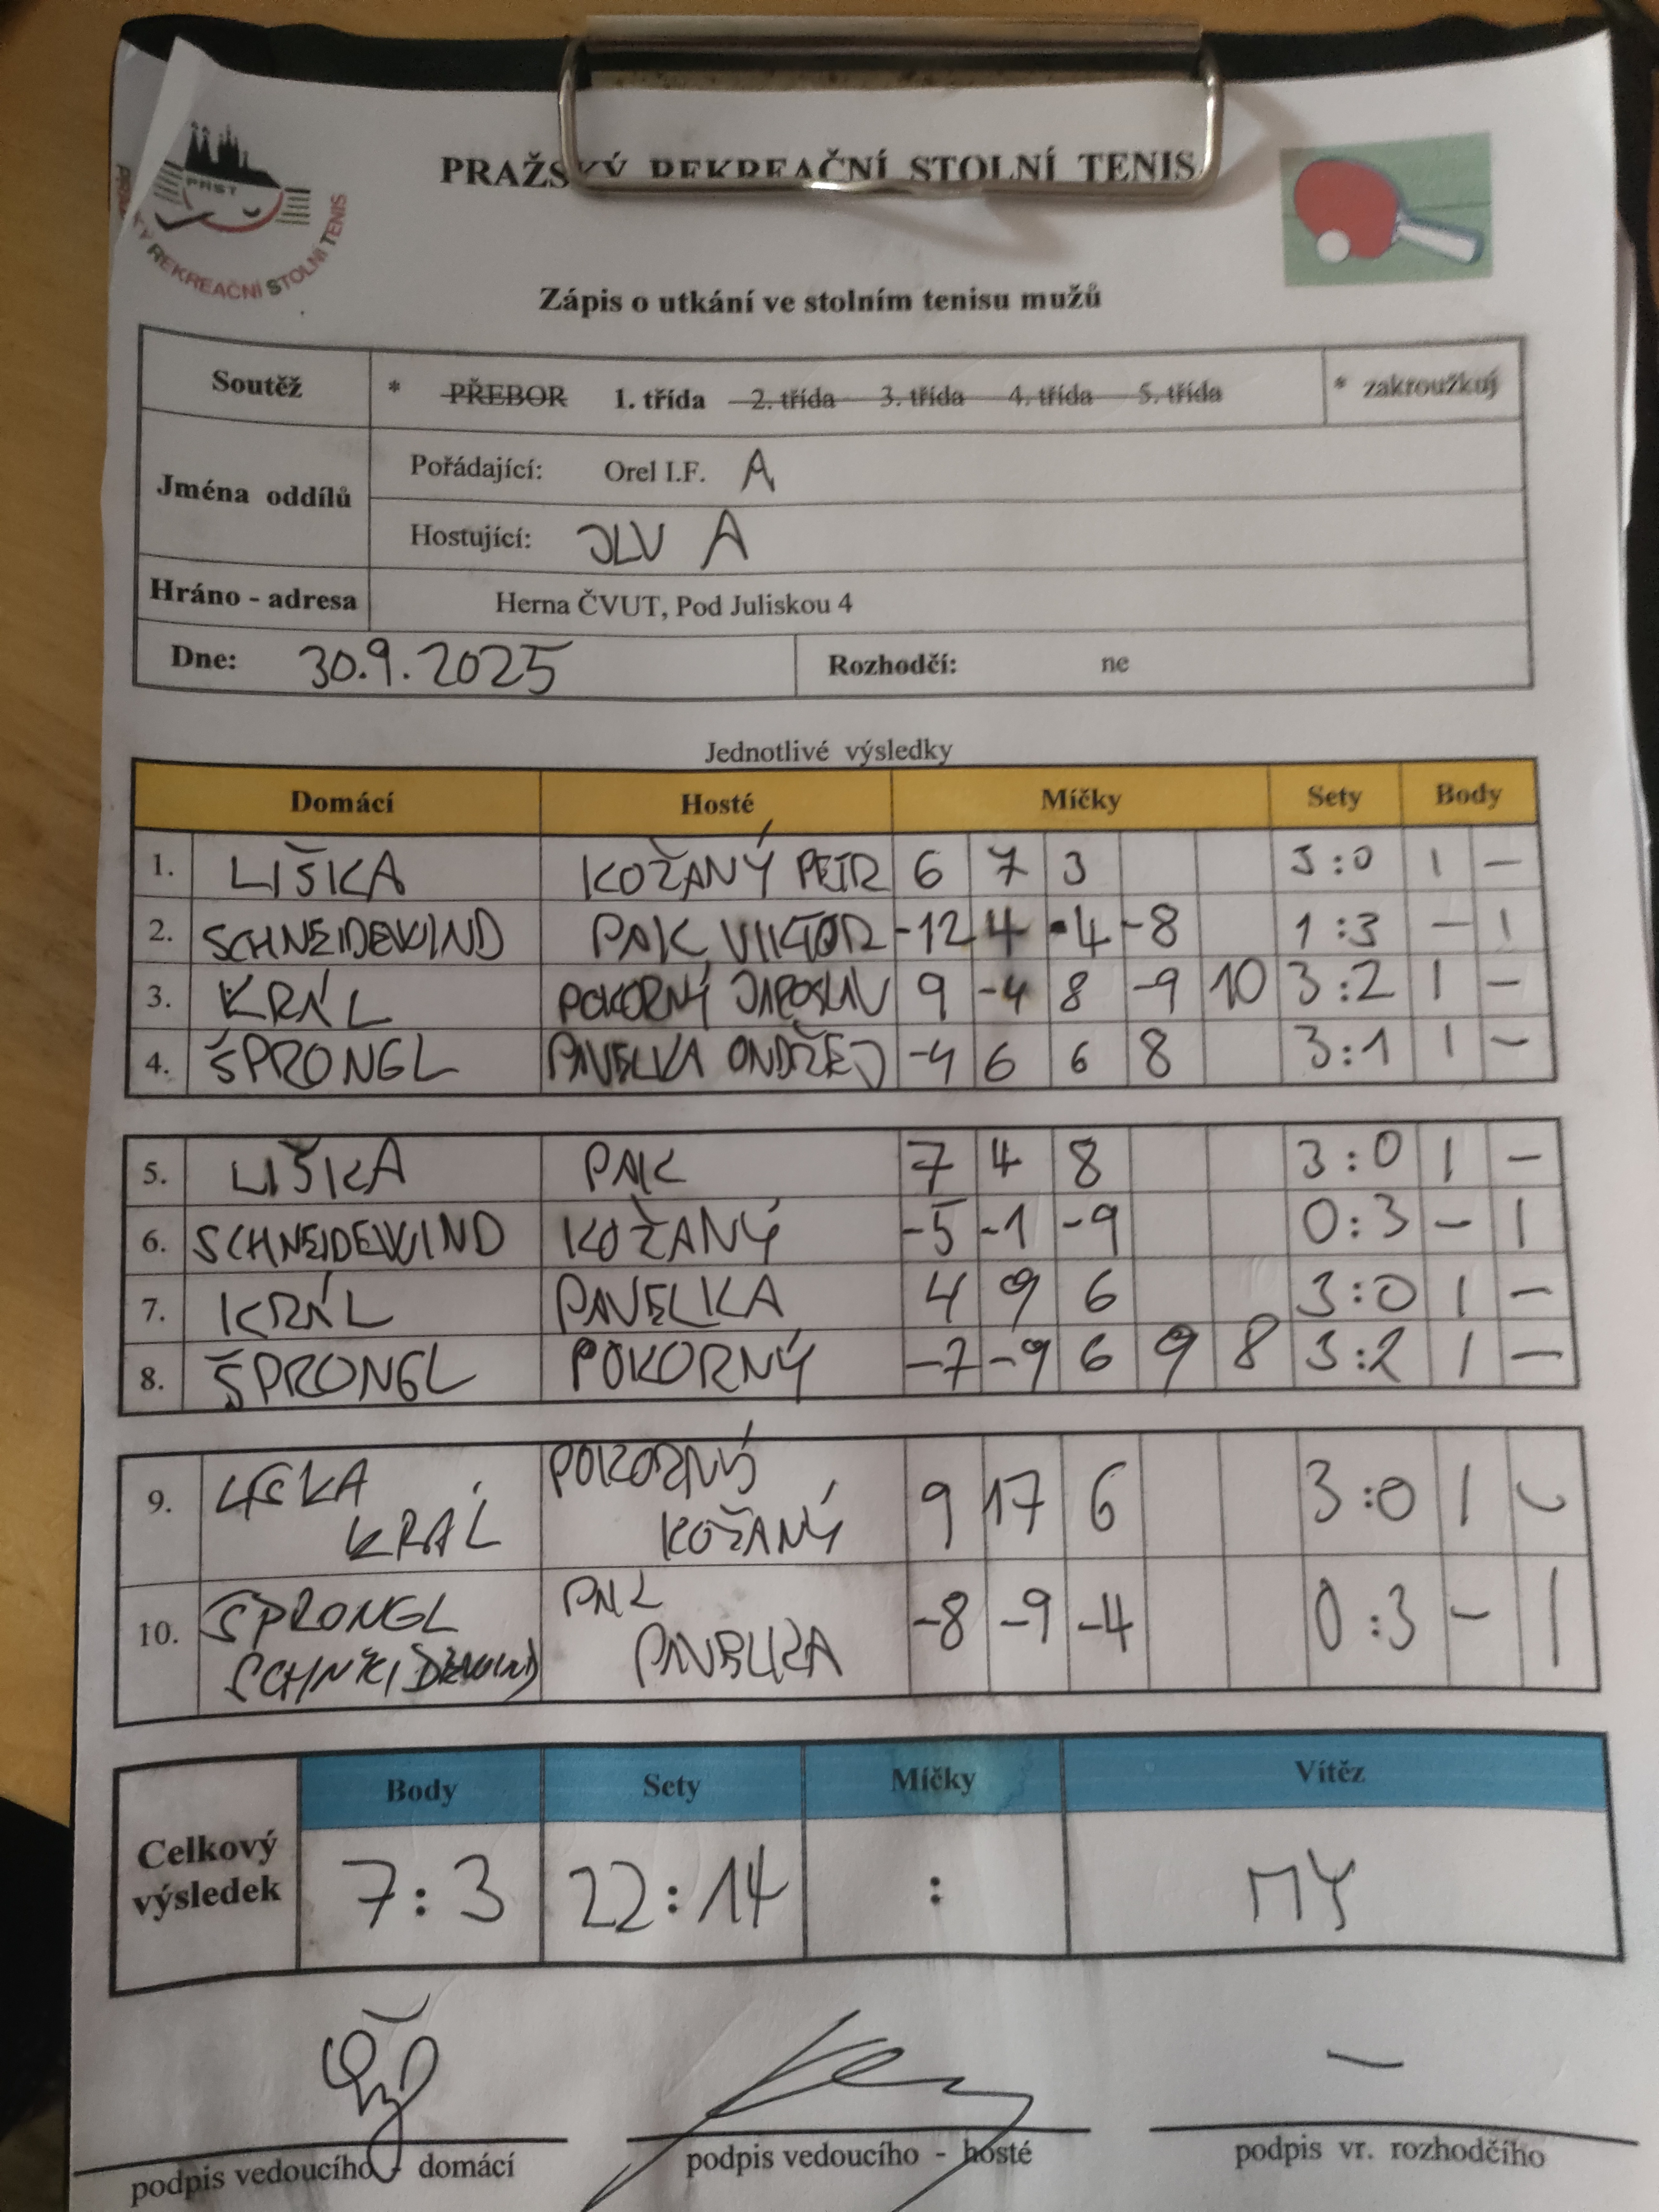 PRAŽSKÝ REKREAČNÍ STOLNÍ TENIS
PRST
REKREAČNÍ STOLNÍ TENIS
Zápis o utkání ve stolním tenisu mužů
Soutěž * PŘEBOR 1. třída 2. třída 3. třída 4. třída 5. třída * zakroužkuj
Jména oddílů
Pořádající: Orel I.F. A
Hostující: JLV A
Hráno - adresa Herna ČVUT, Pod Juliskou 4
Dne: 30.9.2025 Rozhodčí: ne
Jednotlivé výsledky
Domácí Hosté Míčky Sety Body
1. LIŠKA KOŽANÝ PETR 6 7 3 3:0 1 –
2. SCHNEIDEWIND PAK VIKTOR -12 4 -4 -8 1:3 – 1
3. KRÁL POKORNÝ JAROSLAV 9 -4 8 -9 10 3:2 1 –
4. ŠPRONGL PAVELKA ONDŘEJ -4 6 6 8 3:1 1 –
5. LIŠKA PAK 7 4 8 3:0 1 –
6. SCHNEIDEWIND KOŽANÝ -5 -1 -9 0:3 – 1
7. KRÁL PAVELKA 4 9 6 3:0 1 –
8. ŠPRONGL POKORNÝ -7 -9 6 9 8 3:2 1 –
9. LIŠKA POKORNÝ 9 17 6 3:0 1 –
KRÁL KOŽANÝ
10. ŠPRONGL PAK -8 -9 -4 0:3 – 1
SCHNEIDEWIND PAVELKA
Body Sety Míčky Vítěz
Celkový výsledek 7:3 22:14 : MY
podpis vedoucího - domácí podpis vedoucího - hosté podpis vr. rozhodčího